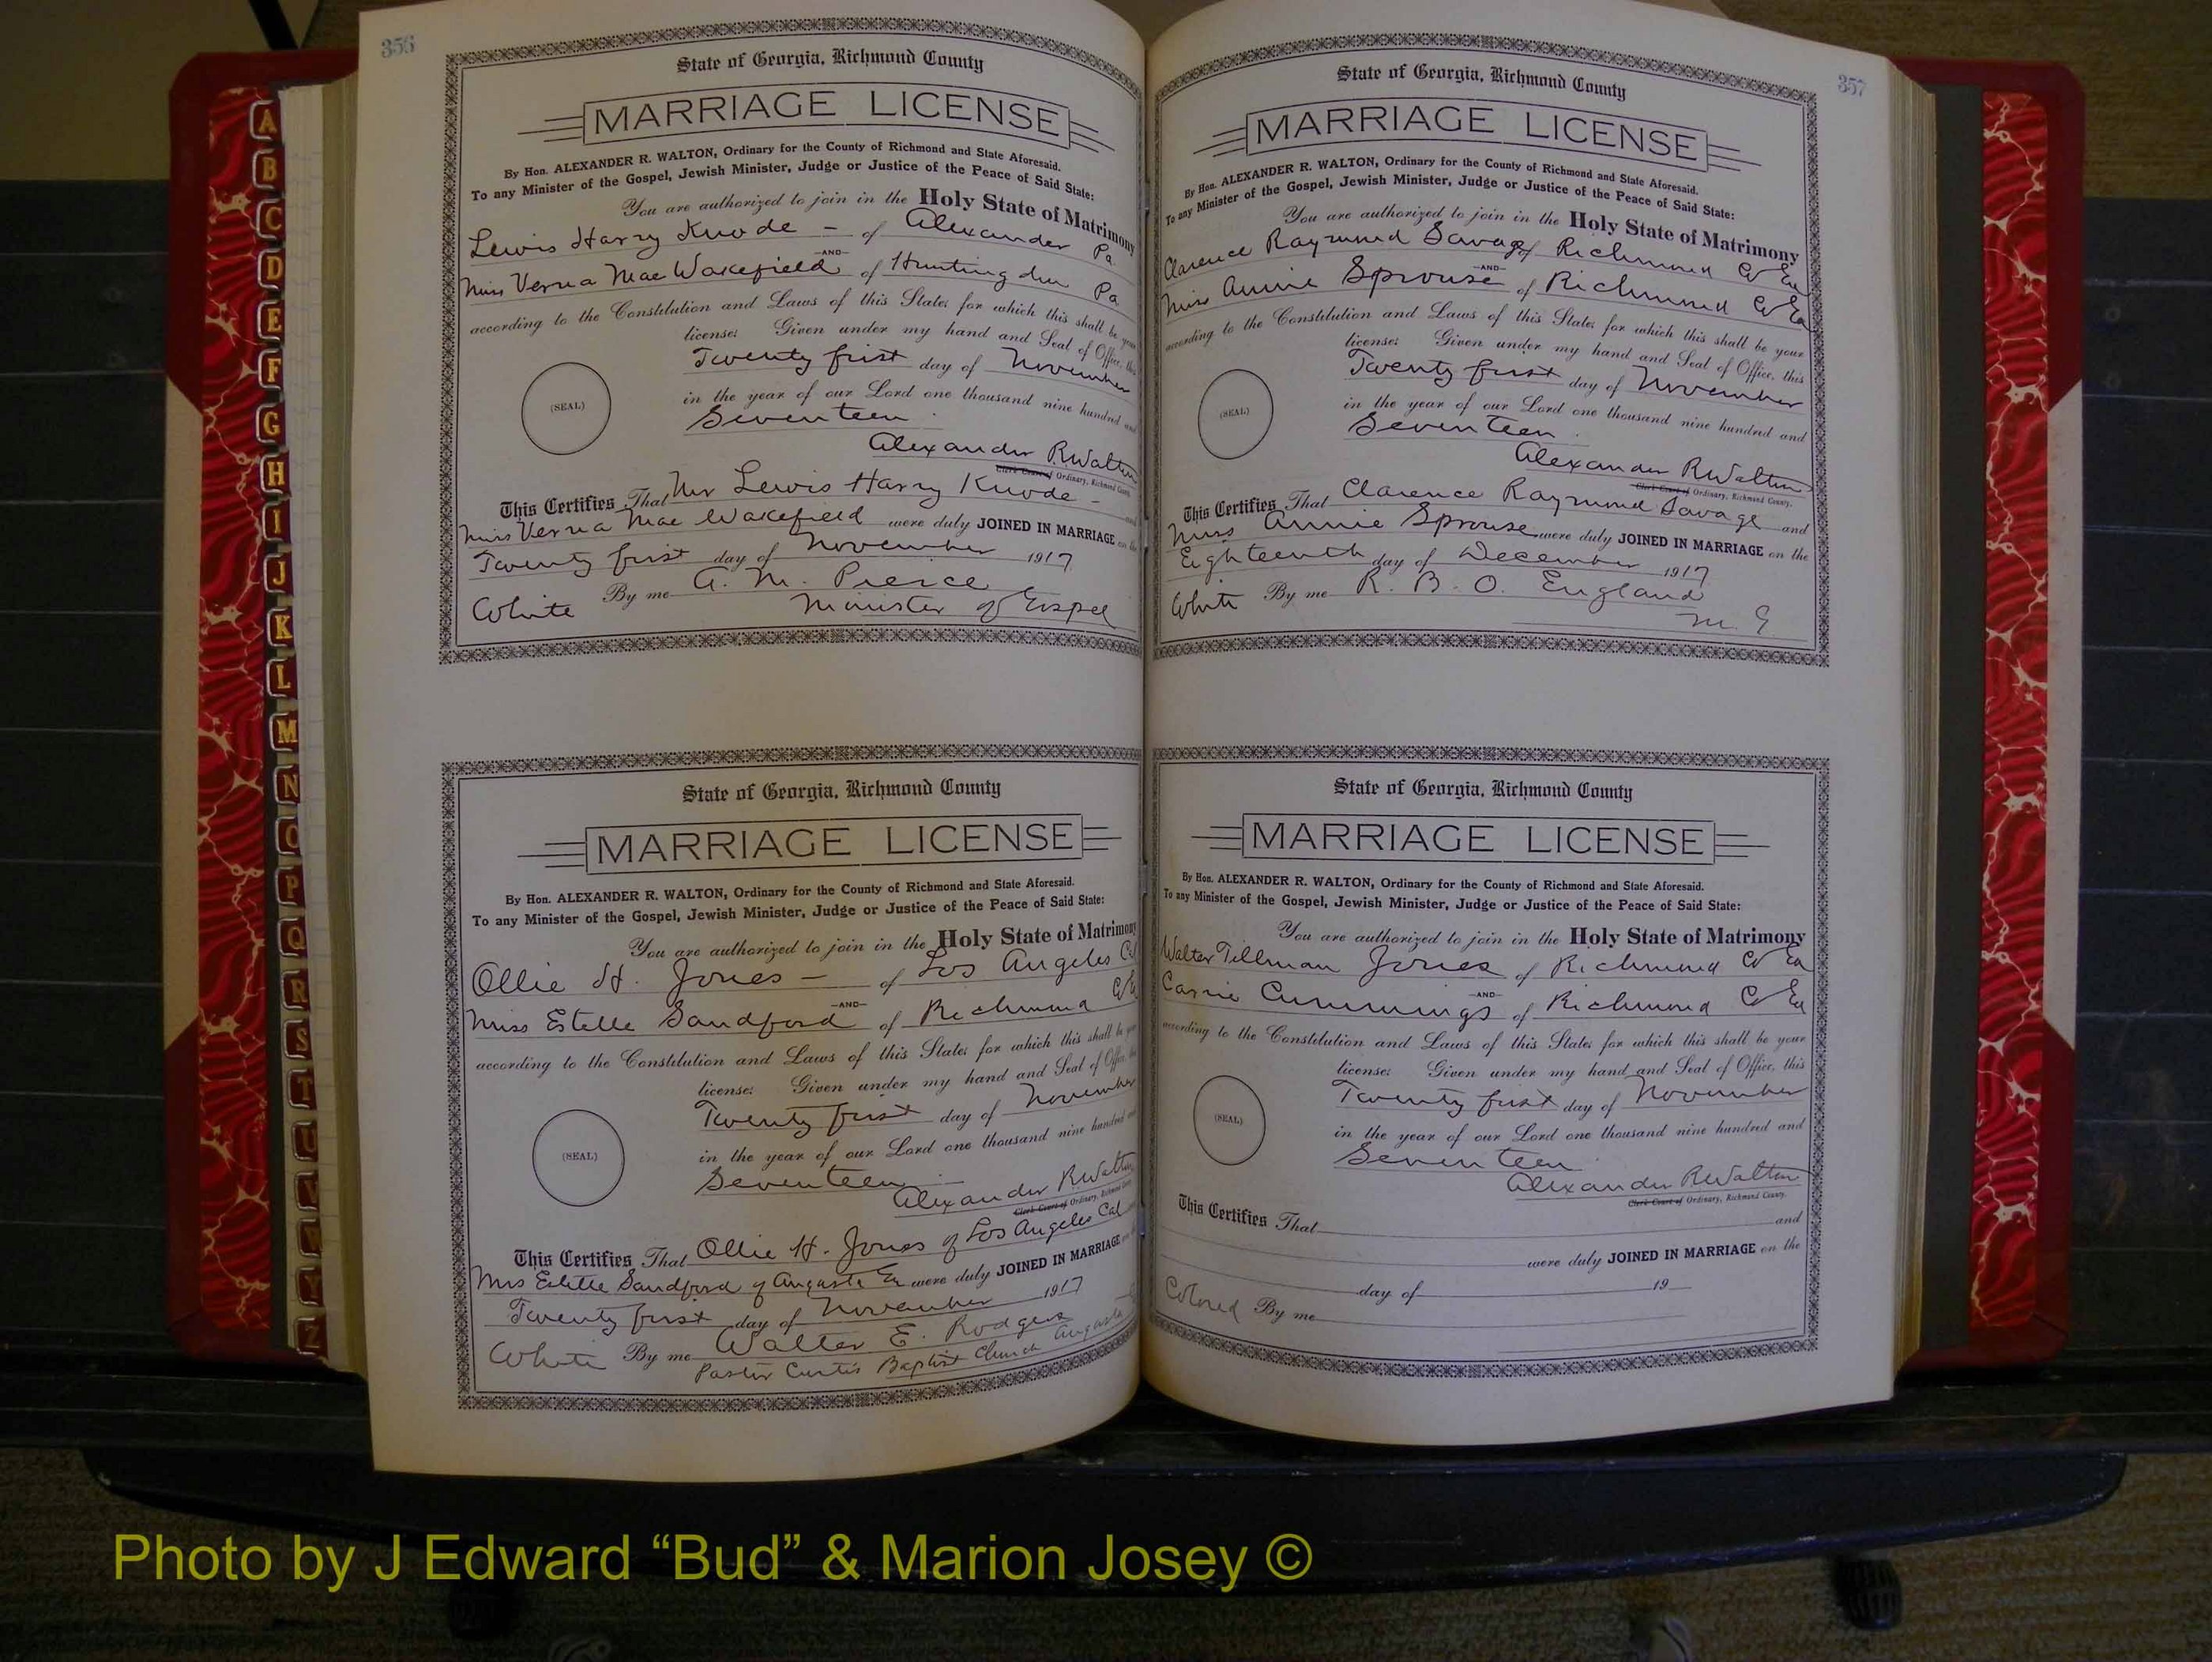 356
State of Georgia, Richmond County
MARRIAGE LICENSE
By Hon. ALEXANDER R. WALTON, Ordinary for the County of Richmond and State Aforesaid.
To any Minister of the Gospel, Jewish Minister, Judge or Justice of the Peace of Said State:
You are authorized to join in the Holy State of Matrimony
Lewis Harry Knode - of Alexander Pa
-AND-
Miss Verna Mae Wakefield of Huntingdon Pa
according to the Constitution and Laws of this State; for which this shall be your
license: Given under my hand and Seal of Office, this
Twenty first day of November
(SEAL)
in the year of our Lord one thousand nine hundred and
Seventeen
Alexander R Walton
Clerk Court of Ordinary, Richmond County
This Certifies That Mr Lewis Harry Knode - and
Miss Verna Mae Wakefield were duly JOINED IN MARRIAGE on the
Twenty first day of November 1917
White By me A. M. Pierce
Minister of Gospel
State of Georgia, Richmond County
MARRIAGE LICENSE
By Hon. ALEXANDER R. WALTON, Ordinary for the County of Richmond and State Aforesaid.
To any Minister of the Gospel, Jewish Minister, Judge or Justice of the Peace of Said State:
You are authorized to join in the Holy State of Matrimony
Ollie H. Jones - of Los Angeles Cal
-AND-
Miss Estelle Sandford of Richmond Co
according to the Constitution and Laws of this State; for which this shall be your
license: Given under my hand and Seal of Office, this
Twenty first day of November
(SEAL)
in the year of our Lord one thousand nine hundred and
Seventeen
Alexander R Walton
Clerk Court of Ordinary, Richmond County
This Certifies That Ollie H. Jones of Los Angeles Cal
Miss Estelle Sandford of Augusta Ga were duly JOINED IN MARRIAGE on
Twenty first day of November 1917
White By me Walter E. Rodgers
Pastor Curtis Baptist Church Augusta
357
State of Georgia, Richmond County
MARRIAGE LICENSE
By Hon. ALEXANDER R. WALTON, Ordinary for the County of Richmond and State Aforesaid.
To any Minister of the Gospel, Jewish Minister, Judge or Justice of the Peace of Said State:
You are authorized to join in the Holy State of Matrimony
Clarence Raymond Savage of Richmond Co Ga
-AND-
Miss Annie Sprouse of Richmond Co Ga
according to the Constitution and Laws of this State; for which this shall be your
license: Given under my hand and Seal of Office, this
Twenty first day of November
(SEAL)
in the year of our Lord one thousand nine hundred and
Seventeen
Alexander R Walton
Clerk Court of Ordinary, Richmond County.
This Certifies That Clarence Raymond Savage and
Miss Annie Sprouse were duly JOINED IN MARRIAGE on the
Eighteenth day of December 1917
White By me R. B. O. England
M. G.
State of Georgia, Richmond County
MARRIAGE LICENSE
By Hon. ALEXANDER R. WALTON, Ordinary for the County of Richmond and State Aforesaid.
To any Minister of the Gospel, Jewish Minister, Judge or Justice of the Peace of Said State:
You are authorized to join in the Holy State of Matrimony
Walter Tillman Jones of Richmond Co Ga
-AND-
Carrie Cummings of Richmond Co Ga
according to the Constitution and Laws of this State; for which this shall be your
license: Given under my hand and Seal of Office, this
Twenty first day of November
(SEAL)
in the year of our Lord one thousand nine hundred and
Seventeen
Alexander R Walton
Clerk Court of Ordinary, Richmond County.
This Certifies That and
were duly JOINED IN MARRIAGE on the
day of 19
Colored By me
A
B
C
D
E
F
G
H
I
J
K
L
M
N
O
P
Q
R
S
T
U
V
W
Y
Z
Photo by J Edward “Bud” & Marion Josey ©